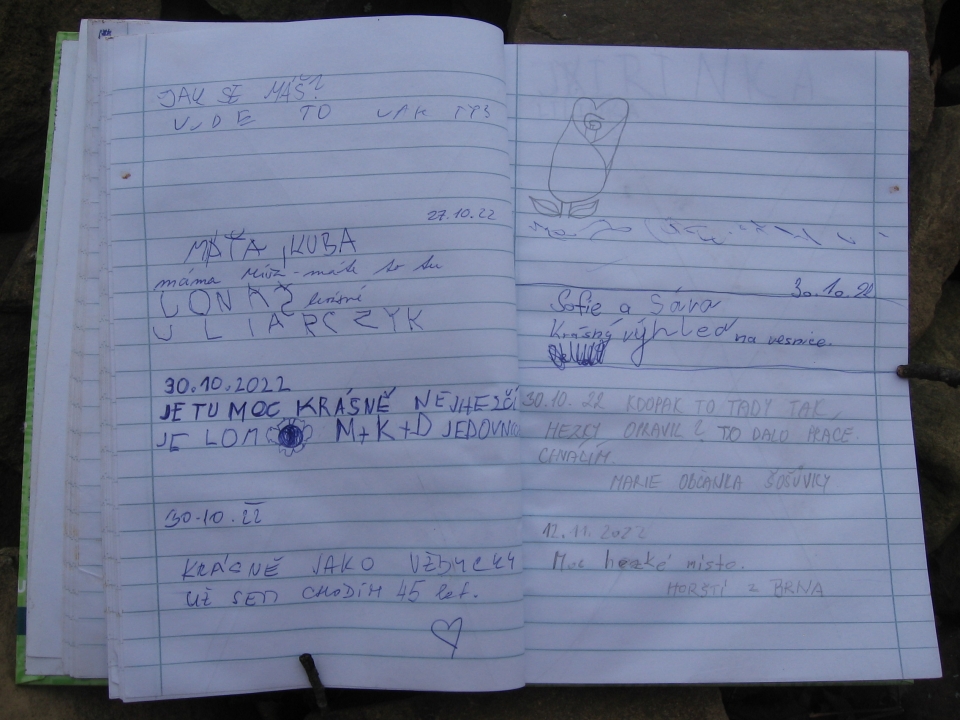 JAK SE MÁŠ?
TO JAK
27.10.22
MÁŤA JKUBA
máma máte to tu
LONÁŠ krásné
ULIARCZYK
30.10.2022
JE TU MOC KRÁSNĚ NEJHEZČÍ
JE LOM M+K+D JEDOVNIC
30.10.22
KRÁSNĚ JAKO VŽDYCKY
UŽ SEM CHODÍM 45 let.
30.10.22
Sofie a Sáva
Krásný výhled na vesnice.
30.10.22 KDOPAK TO TADY TAK
HEZKY OPRAVIL? TO DALO PRÁCE.
CHVÁLÍM.
MARIE OBČANKA ŠOŠŮVKY
12.11.2022
Moc hezké místo.
HORŠTÍ z BRNA